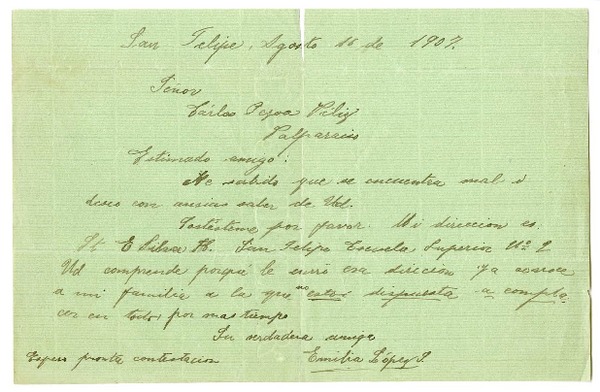 San Felipe, Agosto 16 de 1907.
Señor
Cárlos Pezoa Véliz
Valparaiso
Estimado amigo:
He sabido que se encuentra mal i
deseo con ansias saber de Ud.
Contésteme por favor. Mi direccion es:
St. E Silva H. San Felipe Escuela Superior Nº 2
Ud comprende porqué le envio esa direccion ya conoce
a mi familia a la que no estoi dispuesta a compla
cer en todo por mas tiempo
Su verdadera amiga
Espero pronta contestacion Emilia López S.